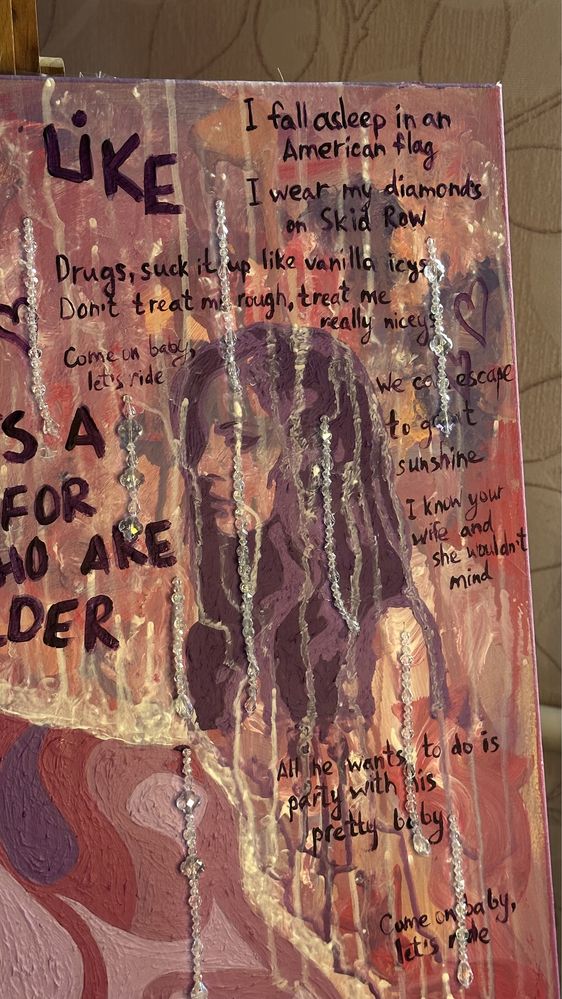 LIKE
I fall asleep in an
American flag
I wear my diamonds
on Skid Row
Drugs, suck it up like vanilla icys
Don't treat me rough, treat me
really niceys
Come on baby,
let's ride
We can escape
to great
sunshine
I know your
wife and
she wouldn't
mind
S A
FOR
HO ARE
LDER
All he wants to do is
party with his
pretty baby
Come on baby,
let's ride